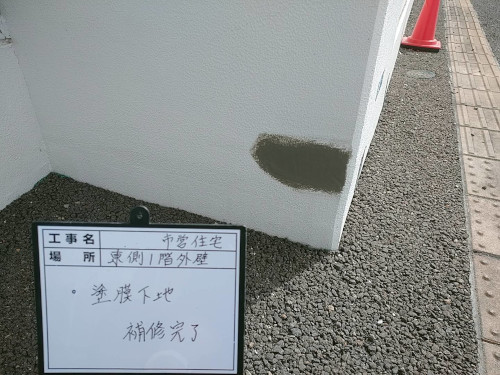 工事名 市営住宅
場所 東側1階外壁
・塗膜下地
補修完了